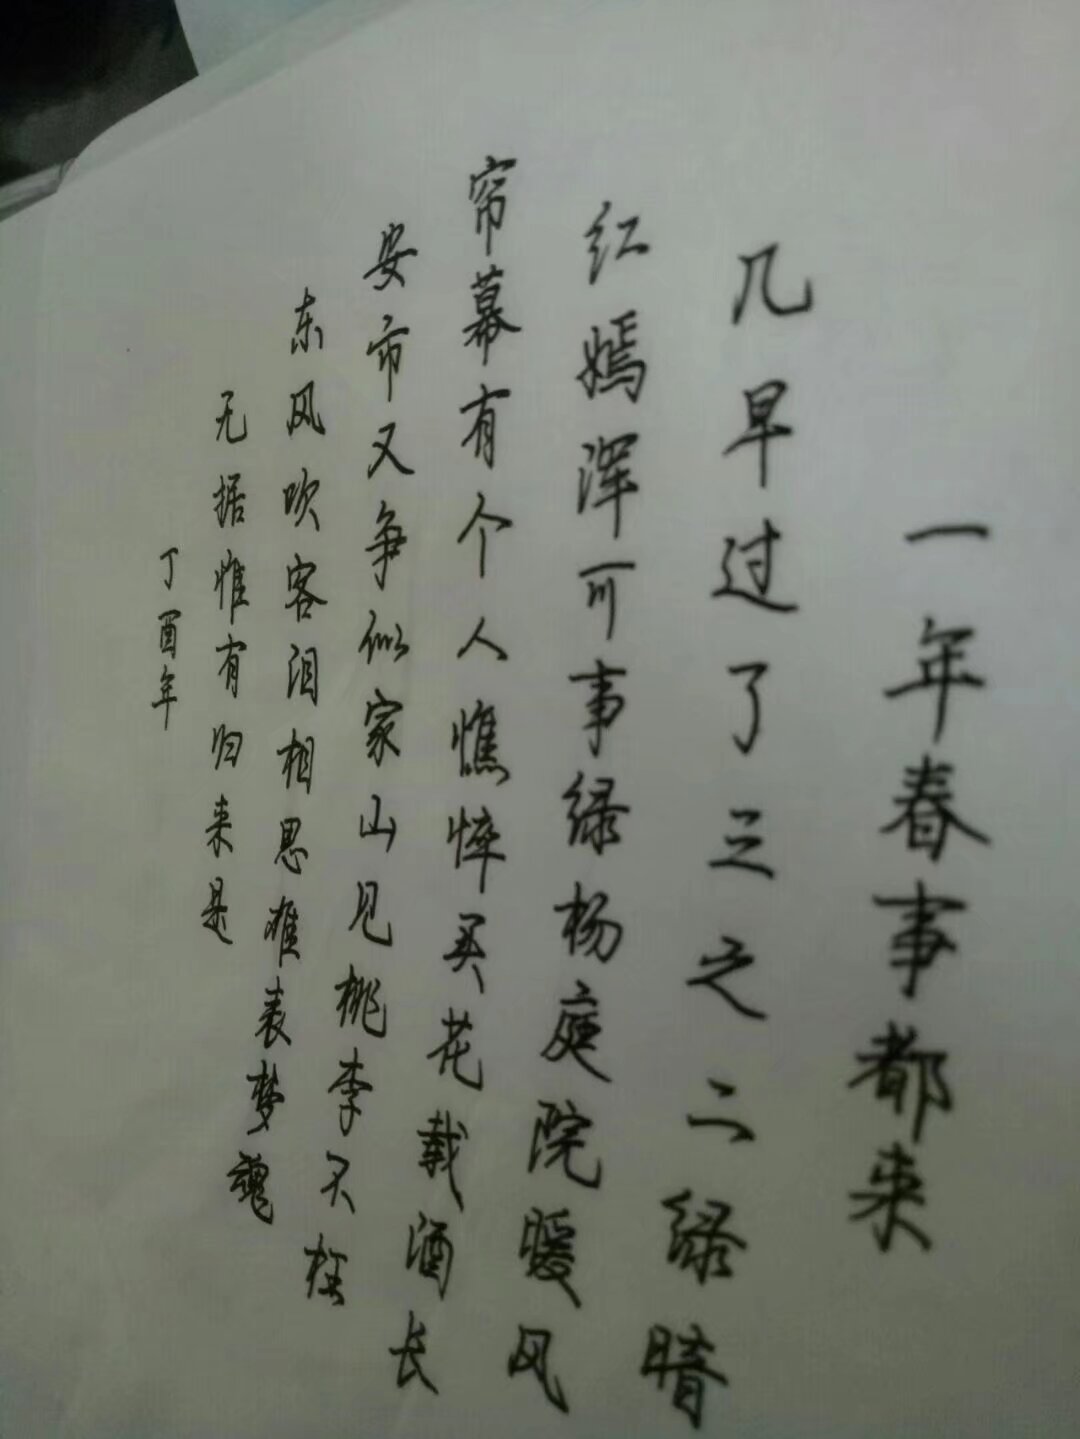 一年春事都来
几早过了三之二绿暗
红嫣浑可事绿杨庭院暖风
帘幕有个人憔悴买花载酒长
安市又争似家山见桃李不枉
东风吹客泪相思难表梦魂
无据惟有归来是
丁酉年